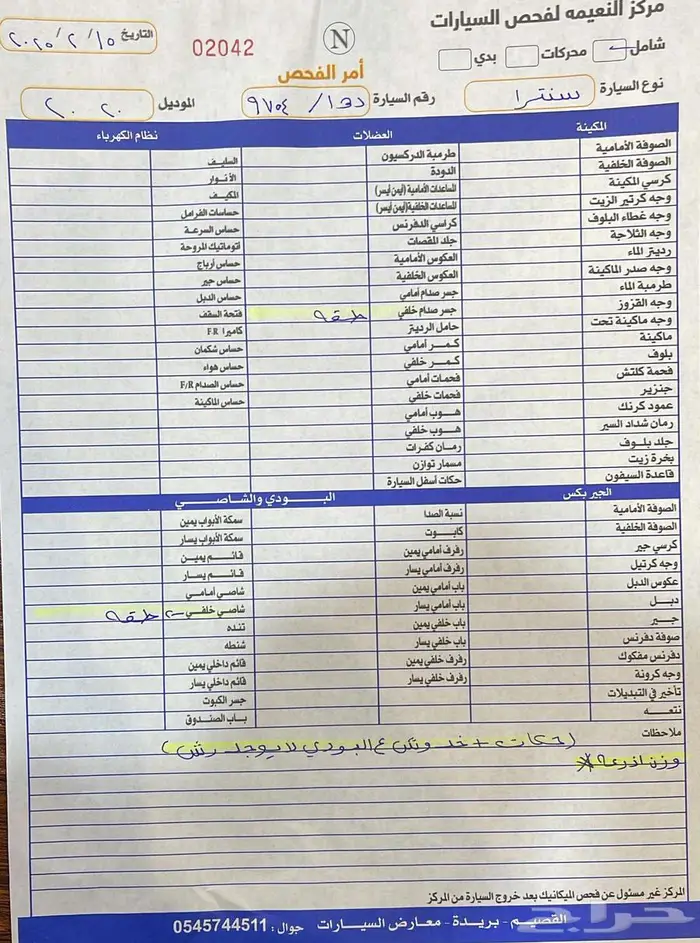 مركز النعيمه لفحص السيارات
شامل محركات بدي
N
02042
التاريخ ٢٠٢٥/٢/١٥
أمر الفحص
نوع السيارة سنترا
رقم السيارة ٩٧٥٤
الموديل ٢٠٢٠
المكينة
الصوفة الأمامية
الصوفة الخلفية
كرسي المكينة
وجه كرتير الزيت
وجه غطاء البلوف
وجه الثلاجة
رديتر الماء
وجه صدر الماكينة
طرمبة الماء
وجه القزوز
وجه ماكينة تحت
ماكينة
بلوف
فحمة كلتش
جنزير
عمود كرنك
رمان شداد السير
جلد بلوف
بخرة زيت
قاعدة السيفون
العضلات
طرمبة الدركسيون
الدودة
المساعدات الأمامية (أيمن أيسر)
المساعدات الخلفية (أيمن أيسر)
كراسي الدفرنس
جلد المقصات
العكوس الأمامية
العكوس الخلفية
جسر صدام أمامي
جسر صدام خلفي طقه
حامل الرديتر
كمر أمامي
كمر خلفي
فحمات أمامي
فحمات خلفي
هوب أمامي
هوب خلفي
رمان كفرات
مسمار توازن
حكات أسفل السيارة
نظام الكهرباء
السليف
الأنوار
المكيف
حساسات الفرامل
حساس السرعة
اتوماتيك المروحة
حساس أرباح
حساس جير
حساس الدبل
فتحة السقف
كاميرا F.R
حساس شكمان
حساس هواء
حساس الصدام F/R
حساس الماكينة
الجير بكس
الصوفة الأمامية
الصوفة الخلفية
كرسي جير
وجه كرتيل
عكوس الدبل
دبل
جير
صوفة دفرنس
دفرنس مفكوك
وجه كرونة
تأخير في التبديلات
نتعه
البودي والشاصي
نسبة الصدا
كابوت
رفرف أمامي يمين
رفرف أمامي يسار
باب أمامي يمين
باب أمامي يسار
باب خلفي يمين
باب خلفي يسار
رفرف خلفي يمين
رفرف خلفي يسار
سمكة الأبواب يمين
سمكة الأبواب يسار
قائم يمين
قائم يسار
شاصي أمامي
شاصي خلفي طقه
تنده
شنطه
قائم داخلي يمين
قائم داخلي يسار
جسر الكبوت
باب الصندوق
ملاحظات
(حكات + خدوش ع البودي لا يوجد رش)
وزن اذرعه
المركز غير مسئول عن فحص الميكانيك بعد خروج السيارة من المركز
القصيم - بريدة - معارض السيارات جوال : 0545744511
حراج